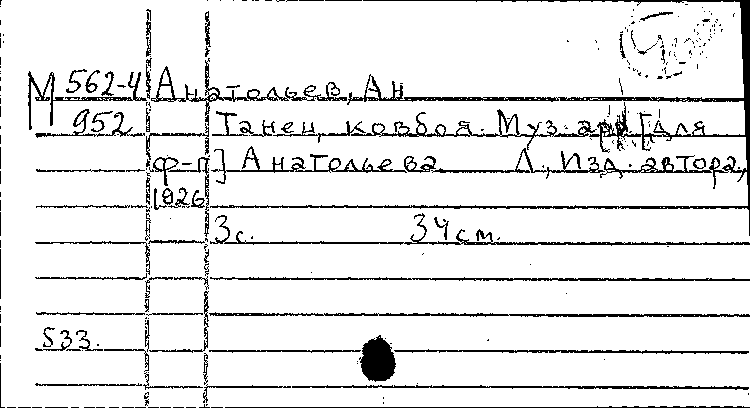 М 562-4 Анатольев, Ан
952 Танец ковбоя. Муз. арр [для
ф-п] Анатольева Л., Изд. автора,
1926
3с. 34 см.
533.